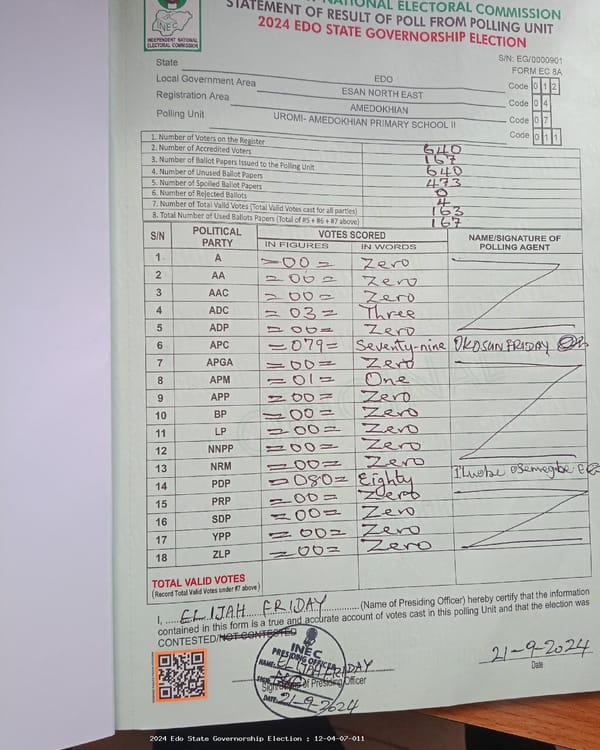 NATIONAL ELECTORAL COMMISSION
STATEMENT OF RESULT OF POLL FROM POLLING UNIT
2024 EDO STATE GOVERNORSHIP ELECTION
INEC
INDEPENDENT NATIONAL
ELECTORAL COMMISSION
S/N: EG/0000901
FORM EC 8A
State EDO Code 0 1 2
Local Government Area ESAN NORTH EAST Code 0 4
Registration Area AMEDOKHIAN Code 0 7
Polling Unit UROMI- AMEDOKHIAN PRIMARY SCHOOL II Code 0 1 1
1. Number of Voters on the Register 640
2. Number of Accredited Voters 167
3. Number of Ballot Papers Issued to the Polling Unit 640
4. Number of Unused Ballot Papers 473
5. Number of Spoiled Ballot Papers 0
6. Number of Rejected Ballots 4
7. Number of Total Valid Votes (Total Valid Votes cast for all parties) 163
8. Total Number of Used Ballots Papers (Total of #5 + #6 + #7 above) 167
S/N POLITICAL PARTY VOTES SCORED NAME/SIGNATURE OF POLLING AGENT
IN FIGURES IN WORDS
1 A =00= Zero
2 AA =00= Zero
3 AAC =00= Zero
4 ADC =03= Three
5 ADP =00= Zero
6 APC =079= Seventy-nine OKOSUN FRIDAY
7 APGA =00= Zero
8 APM =01= One
9 APP =00= Zero
10 BP =00= Zero
11 LP =00= Zero
12 NNPP =00= Zero
13 NRM =00= Zero
14 PDP =080= Eighty
15 PRP =00= Zero
16 SDP =00= Zero
17 YPP =00= Zero
18 ZLP =00= Zero
TOTAL VALID VOTES
(Record Total Valid Votes under #7 above)
I, ELIJAH FRIDAY (Name of Presiding Officer) hereby certify that the information
contained in this form is a true and accurate account of votes cast in this polling Unit and that the election was
CONTESTED/NOT CONTESTED
INEC
PRESIDING OFFICER
NAME: ELIJAH FRIDAY
SIGN:
Signature of Presiding Officer
DATE: 21-9-2024
21-9-2024
Date
2024 Edo State Governorship Election : 12-04-07-011